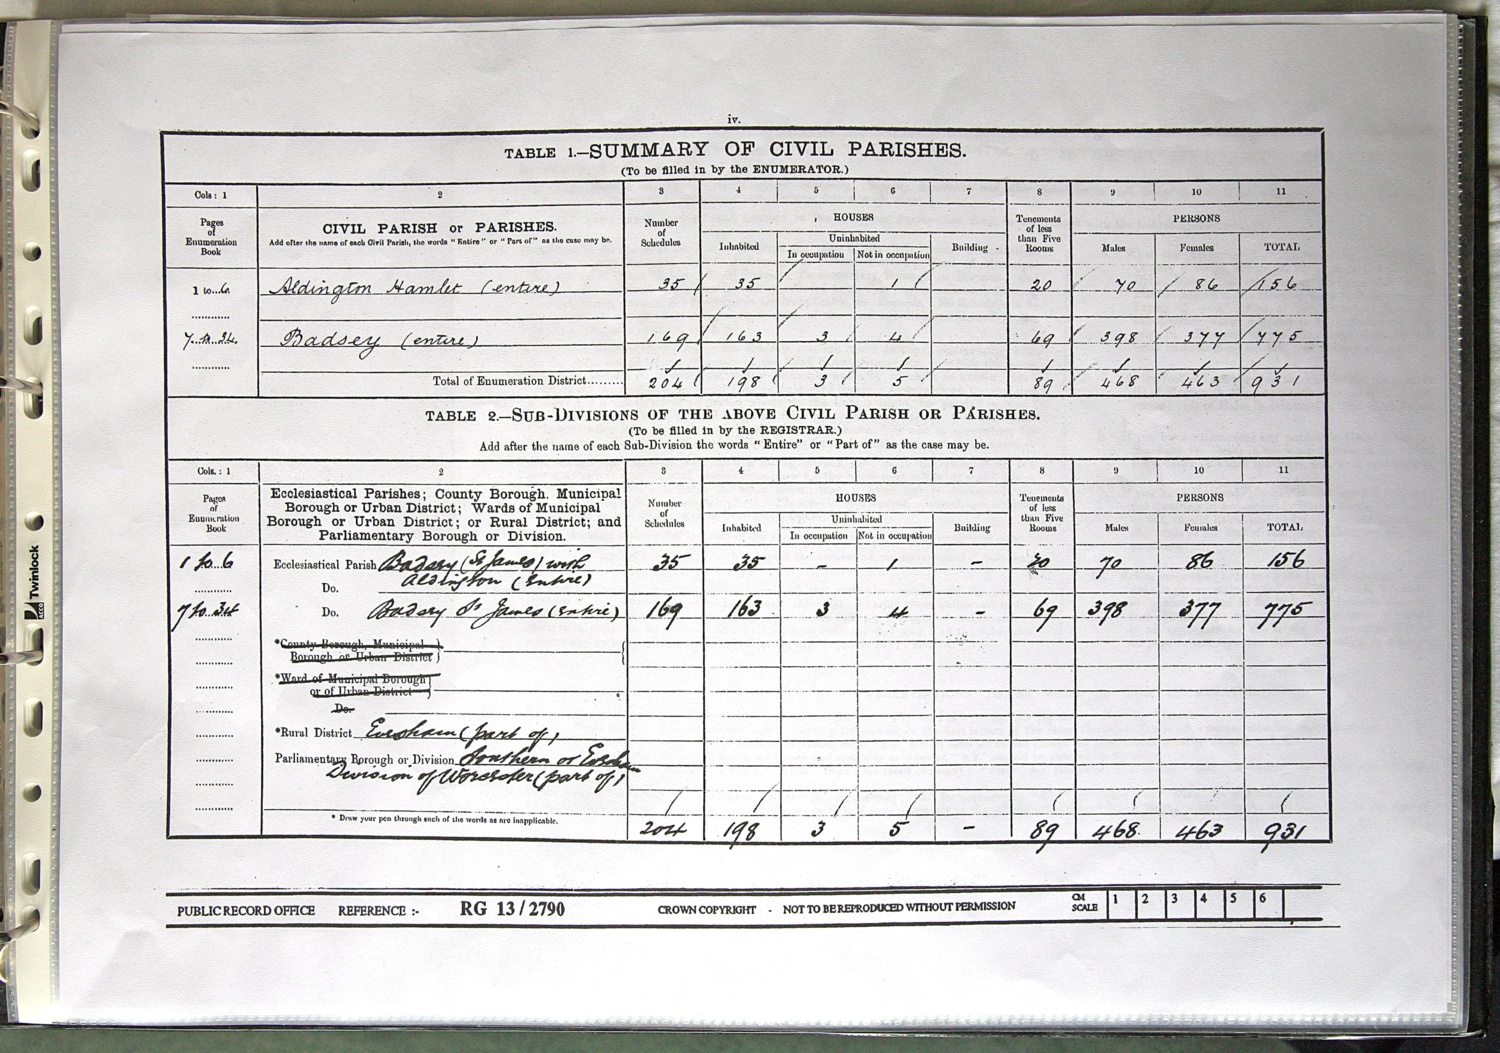 iv.
TABLE 1.—SUMMARY OF CIVIL PARISHES.
(To be filled in by the ENUMERATOR.)
Cols: 1 2 3 4 5 6 7 8 9 10 11
Pages of Enumeration Book
CIVIL PARISH or PARISHES.
Add after the name of each Civil Parish, the words "Entire" or "Part of" as the case may be.
Number of Schedules
HOUSES
Inhabited
Uninhabited
In occupation Not in occupation
Building
Tenements of less than Five Rooms
PERSONS
Males Females TOTAL
1 to 6 Aldington Hamlet (entire) 35 35 1 20 70 86 156
7 to 34 Badsey (entire) 169 163 3 4 69 398 377 775
Total of Enumeration District......... 204 198 3 5 89 468 463 931
TABLE 2.—SUB-DIVISIONS OF THE ABOVE CIVIL PARISH OR PARISHES.
(To be filled in by the REGISTRAR.)
Add after the name of each Sub-Division the words "Entire" or "Part of" as the case may be.
Cols.: 1 2 3 4 5 6 7 8 9 10 11
Pages of Enumeration Book
Ecclesiastical Parishes; County Borough, Municipal
Borough or Urban District; Wards of Municipal
Borough or Urban District; or Rural District; and
Parliamentary Borough or Division.
Number of Schedules
HOUSES
Inhabited
Uninhabited
In occupation Not in occupation
Building
Tenements of less than Five Rooms
PERSONS
Males Females TOTAL
1 to 6 Ecclesiastical Parish Badsey (St James) with 35 35 – 1 – 20 70 86 156
Do. Aldington (Entire)
7 to 34 Do. Badsey St James (Entire) 169 163 3 4 – 69 398 377 775
*County Borough, Municipal
Borough or Urban District
*Ward of Municipal Borough
or of Urban District
Do.
*Rural District Evesham (part of)
Parliamentary Borough or Division Southern or Evesham
Division of Worcester (part of)
* Draw your pen through such of the words as are inapplicable.
204 198 3 5 – 89 468 463 931
PUBLIC RECORD OFFICE REFERENCE :- RG 13/2790 CROWN COPYRIGHT - NOT TO BE REPRODUCED WITHOUT PERMISSION CM SCALE 1 2 3 4 5 6
ACCO Twinlock